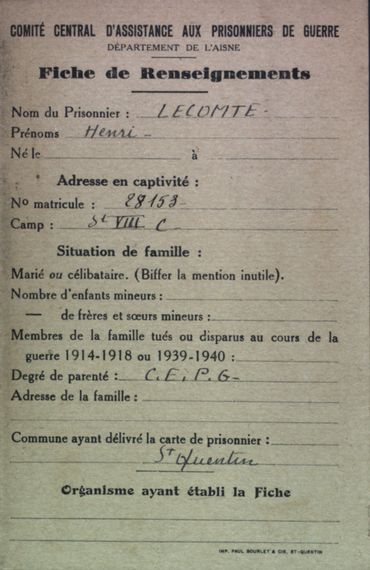 COMITÉ CENTRAL D'ASSISTANCE AUX PRISONNIERS DE GUERRE
DÉPARTEMENT DE L'AISNE
Fiche de Renseignements
Nom du Prisonnier : LECOMTE-
Prénoms Henri -
Né le à
Adresse en captivité :
No matricule : 28153
Camp : St VIII C
Situation de famille :
Marié ou célibataire. (Biffer la mention inutile).
Nombre d'enfants mineurs :
— de frères et sœurs mineurs :
Membres de la famille tués ou disparus au cours de la
guerre 1914-1918 ou 1939-1940 :
Degré de parenté : C.E.P.G-
Adresse de la famille :
Commune ayant délivré la carte de prisonnier :
St Quentin
Organisme ayant établi la Fiche
IMP. PAUL BOURLET & CIE, ST-QUENTIN